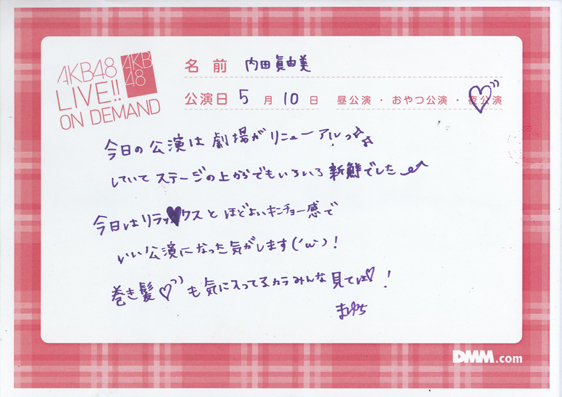 AKB48
LIVE!!
ON DEMAND
AKB
48
名前 内田眞由美
公演日 5月10日 昼公演・おやつ公演・夜公演
今日の公演は劇場がリニューアルっ
していてステージの上からでもいろいろ新鮮でした
今日はリラックスとほどよいキンチョー感で
いい公演になった気がします(´ω`)!
巻き髪♡も気に入ってるカラみんな見てね♡!
DMM.com